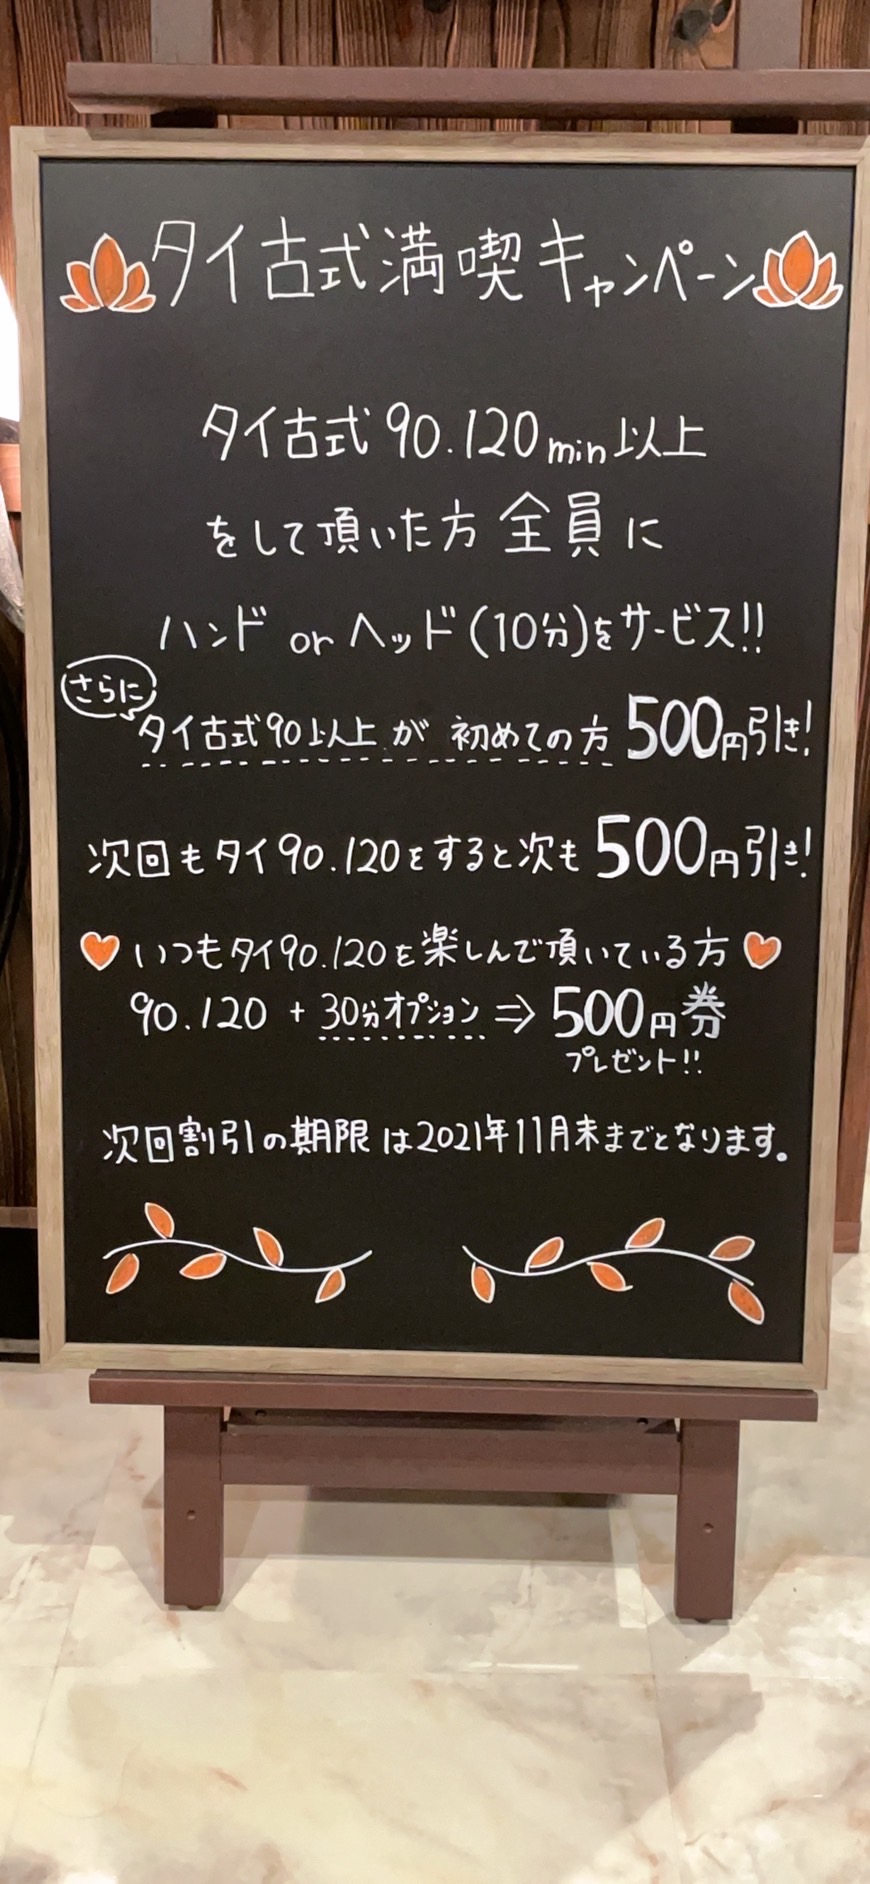 タイ古式満喫キャンペーン
タイ古式90.120min以上
をして頂いた方全員に
ハンド or ヘッド(10分)をサービス!!
さらに
タイ古式90以上が 初めての方 500円引き!
次回もタイ90.120をすると次も 500円引き!
いつもタイ90.120を楽しんで頂いている方
90.120 + 30分オプション ⇒ 500円券
プレゼント!!
次回割引の期限は2021年11月末までとなります。